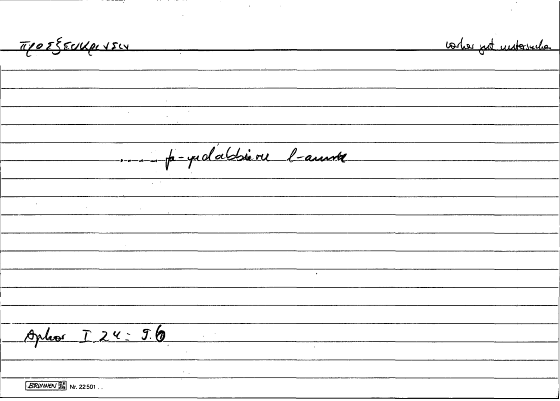 προεξευκρινεῖν vorher gut untersuchen
..... fa-yudabbiru l-amra
Aphor I 24 = 9.6
BRUNNEN Nr. 22501